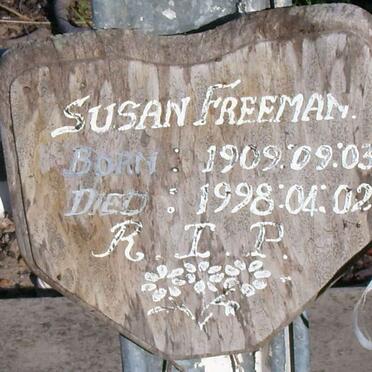 SUSAN FREEMAN.
BORN : 1909:09:03
DIED : 1998:04:02
R. I. P.